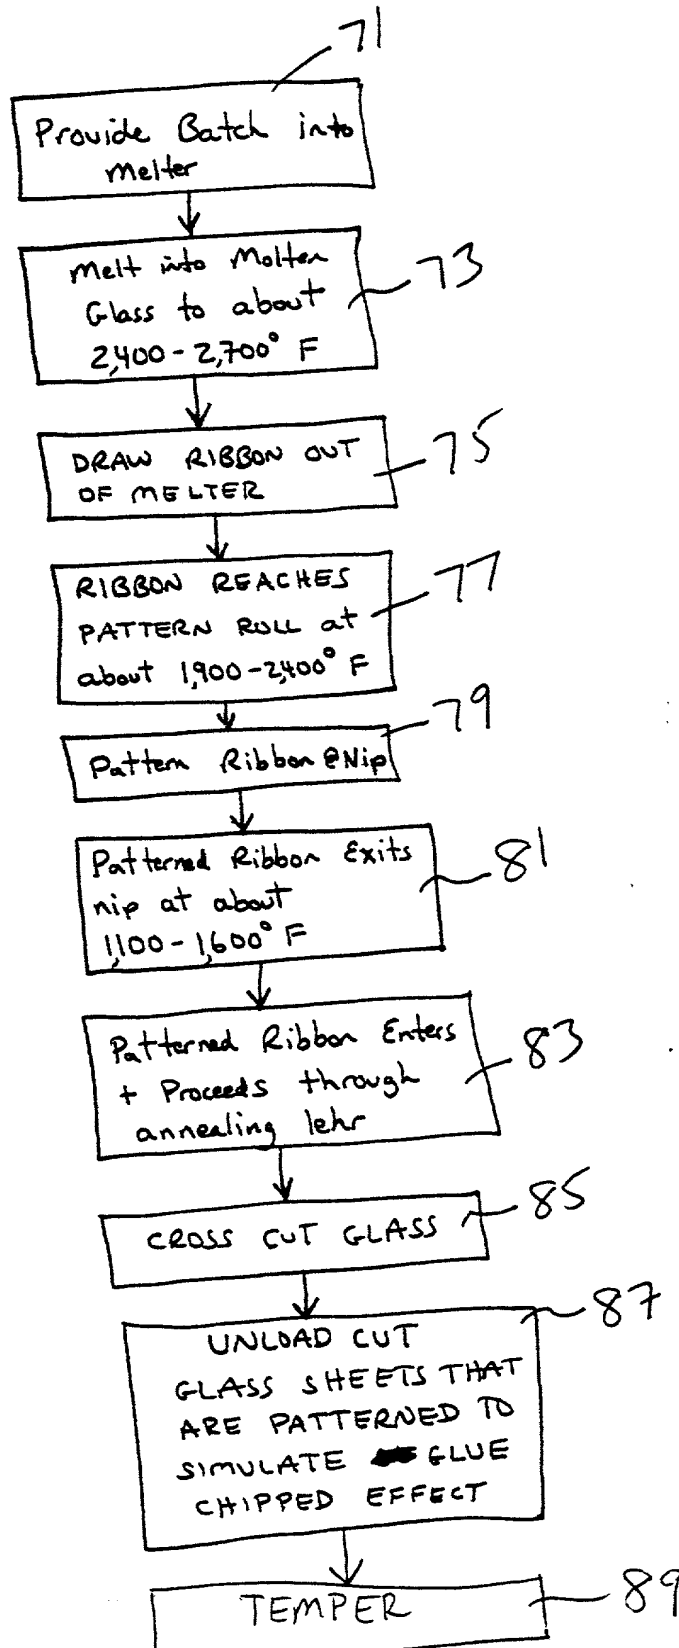 71
Provide Batch into
Melter
Melt into Molten
Glass to about
2,400-2,700° F
73
DRAW RIBBON OUT
OF MELTER
75
RIBBON REACHES
PATTERN ROLL at
about 1,900-2,400° F
77
79
Pattern Ribbon @ Nip
Patterned Ribbon Exits
nip at about
1,100-1,600° F
81
Patterned Ribbon Enters
+ Proceeds through
annealing lehr
83
CROSS CUT GLASS
85
87
UNLOAD CUT
GLASS SHEETS THAT
ARE PATTERNED TO
SIMULATE GLUE
CHIPPED EFFECT
TEMPER
89